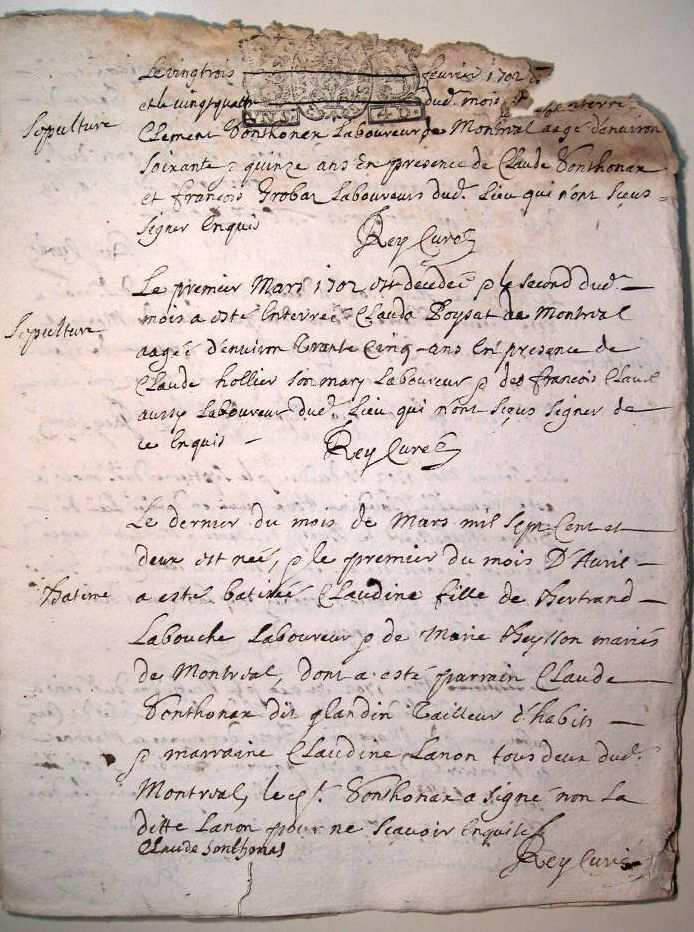 Le vingtrois février 1702
et le vingtquatre dud. mois enterré
Sepulture
Clement Sonthonax Laboureur de Montreal aagé d'environ
soixante & quinze ans En presence de Claude Sonthonax
et françois Grobas Laboureurs dud. Lieu qui n'ont sçeus
signer Enquis
Rey Curé
Le premier Mars 1702 est decedeé & le second dud.
Sepulture
mois a esté Enterreé Clauda Poysat de Montreal
aageé d'environ trante Cinq ans En presence de
Claude hollier son mary Laboureur & de françois Claude
aussy Laboureur dud. Lieu qui n'ont sçeus signer de
ce Enquis
Rey Curé
Le dernier du mois de Mars mil sept Cent et
deux est neé, & le premier du mois D'Avril
Batême
a esté batiseé Claudine fille de Bertrand
Labouche Laboureur & de Marie Beysson mariés
de Montreal, dont a esté parrain Claude
Sonthonax dit glandin tailleur d'habits
& marraine Claudine Lanon tous deux dud.
Montreal, le st. Sonthonax a signé non La
ditte Lanon pour ne scavoir Enquise
Claude sonthonas
Rey Curé